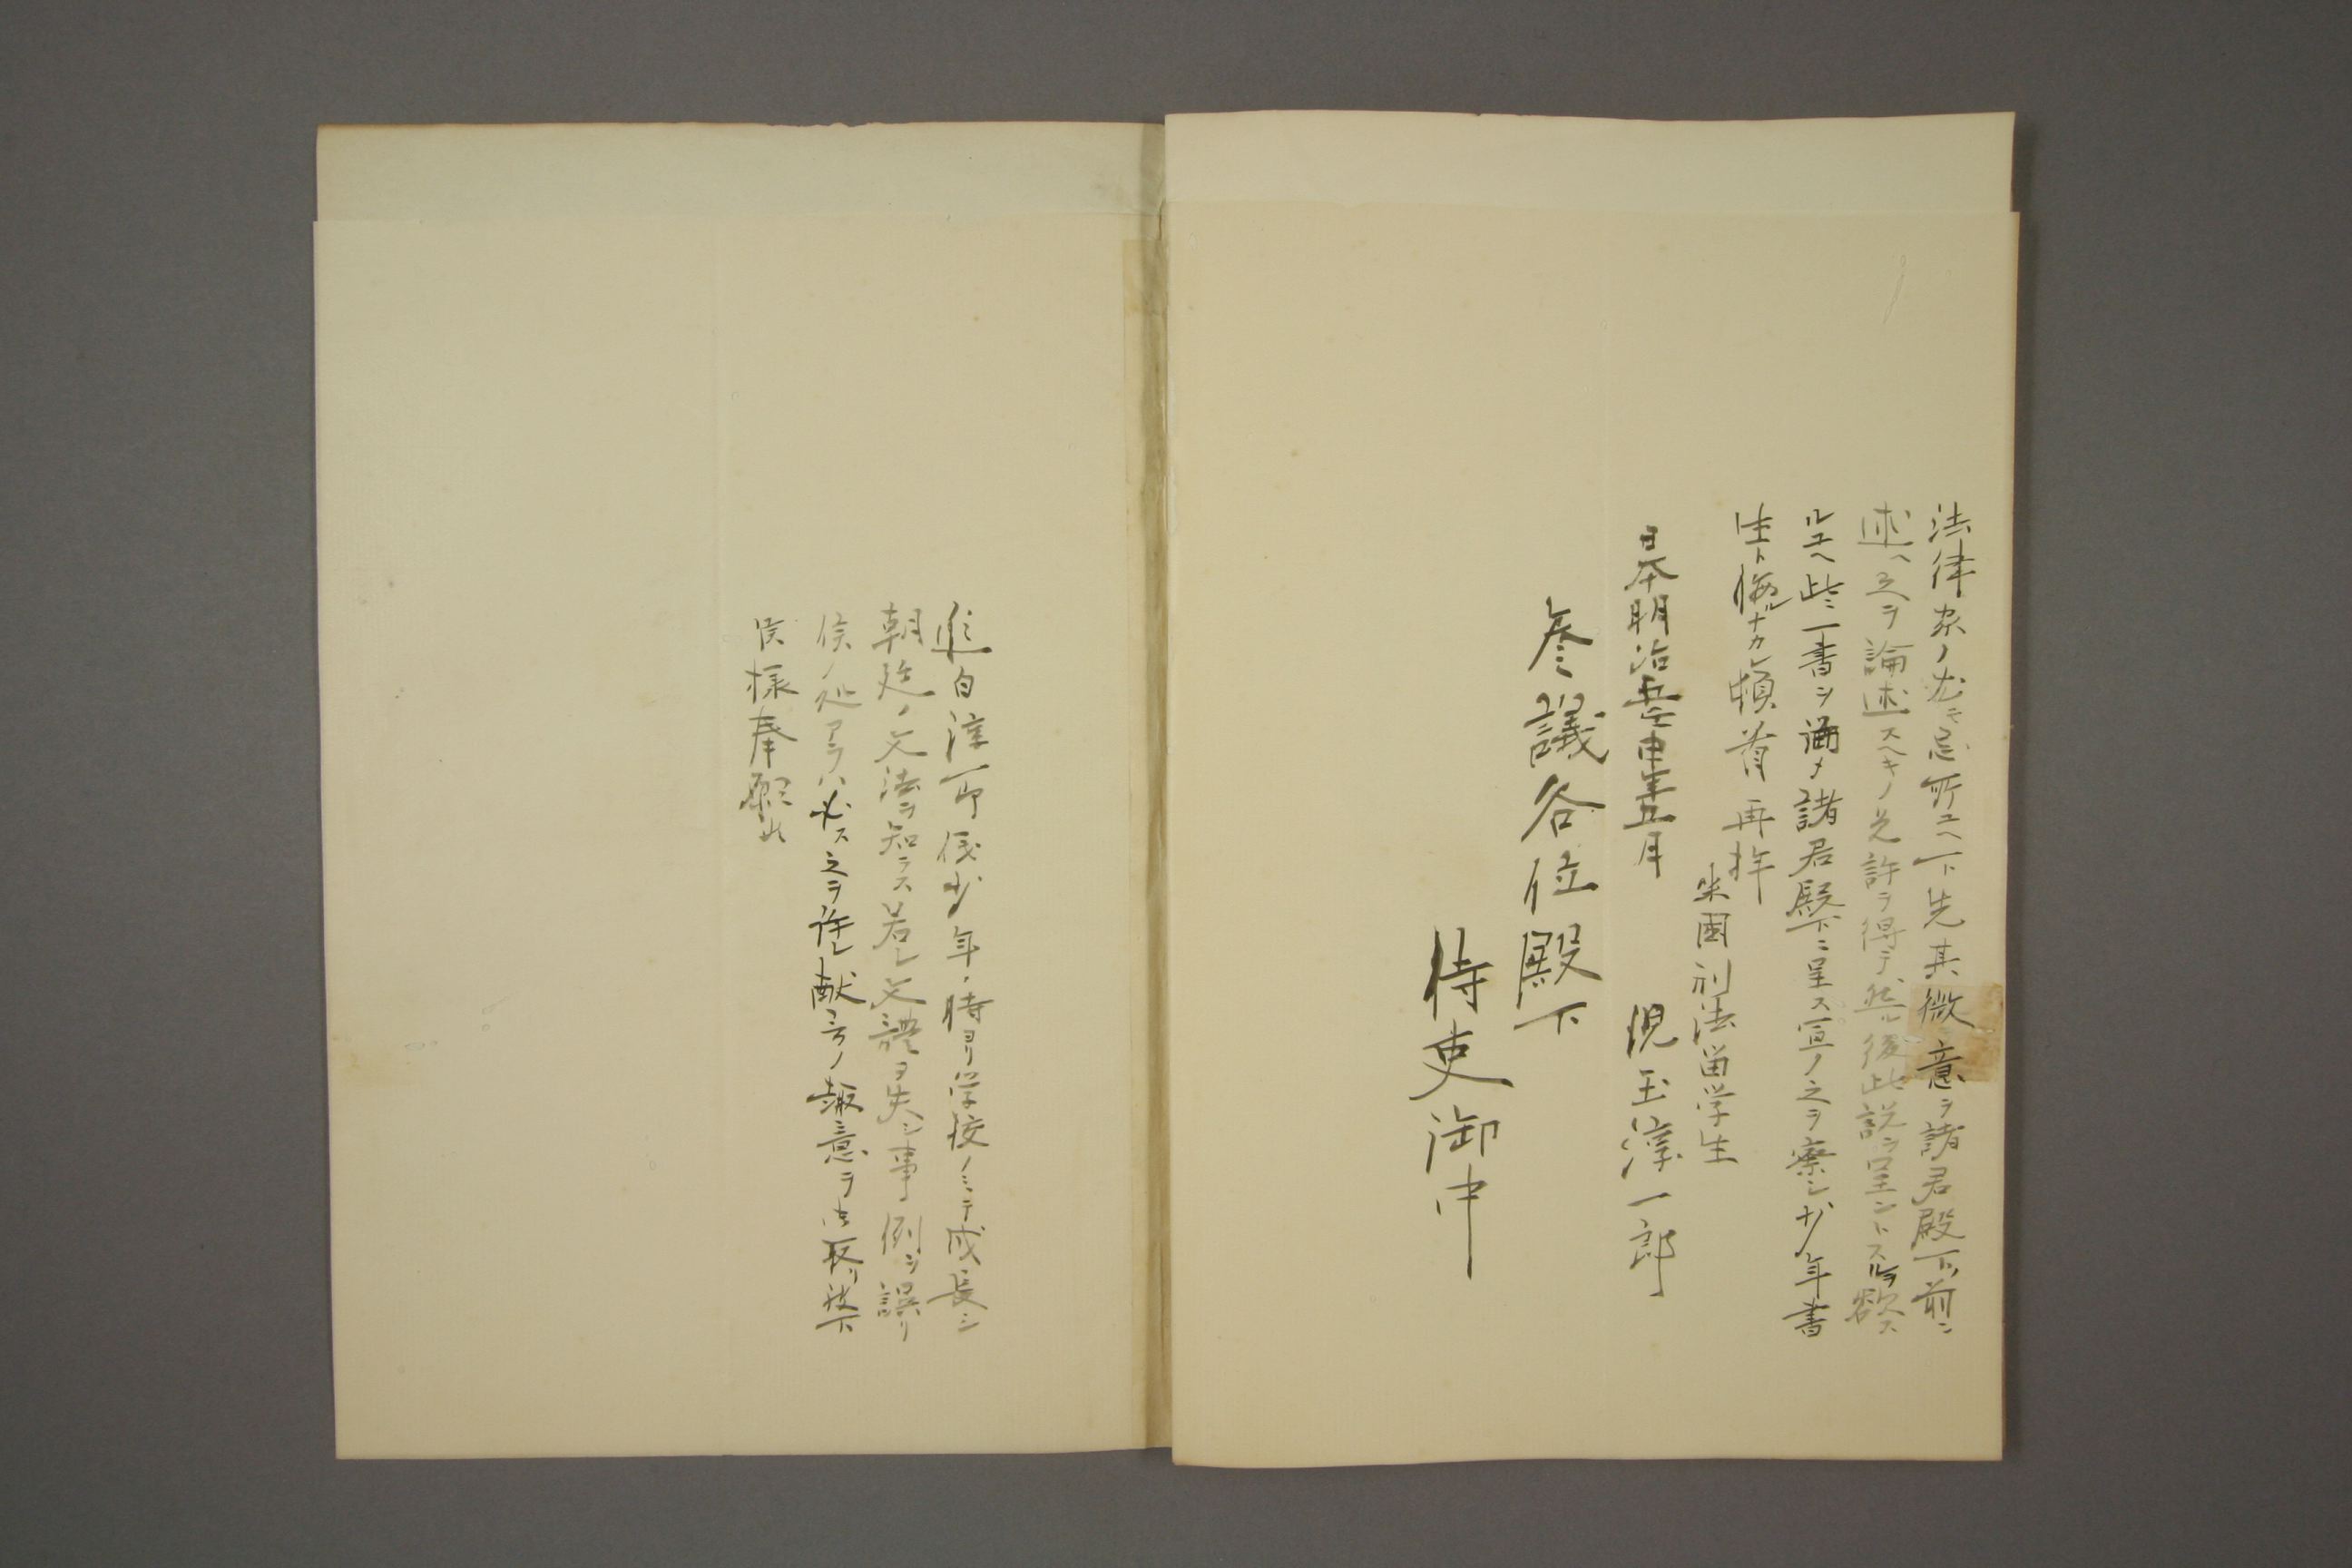 法律家ノ尤モ忌所ユヘ一ト先其微意ヲ諸君殿下ノ前ニ
述ヘ之ヲ論述スヘキノ免許ヲ得テ然ル後此説ヲ呈ントスルヲ欲ス
ルユヘ此ニ一書ヲ認メ諸君殿下ニ呈ス宜ク之ヲ察シ少年書
生ト侮ルナカレ頓首再拝
米国刑法留学生
日本明治五壬申年五月
児玉淳一郎
参議各位殿下
侍吏御中
追白淳一郎儀少年ノ時ヨリ学校ノミニテ成長シ
朝廷ノ文法ヲ知ラス若シ文體ヲ失シ事例ヲ誤リ
候ノ処アラハ必ス之ヲ許シ献言ノ趣意ヲ御取リ被下
候様奉願候